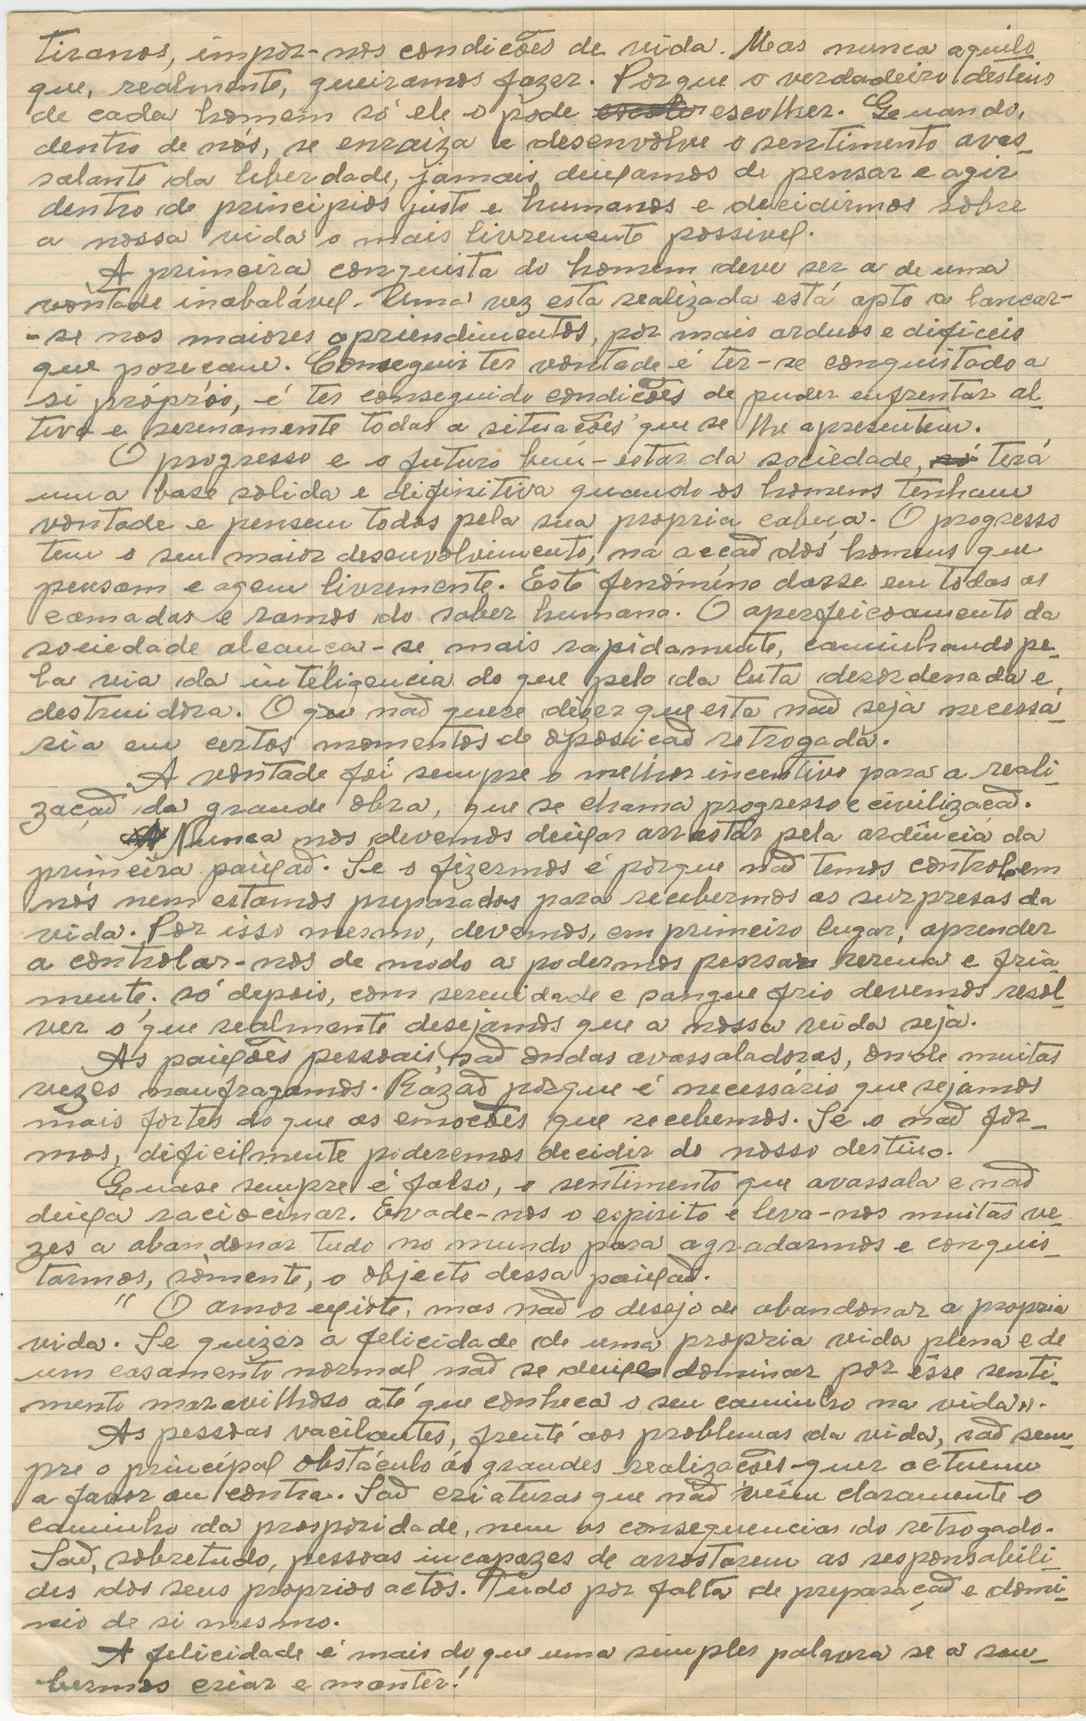 tiranos, impôr-nos condições de vida. Mas nunca aquilo
que, realmente, queiramos fazer. Porque o verdadeiro destino
de cada homem só ele o pode escolher. Quando,
dentro de nós, se enraiza e desenvolve o sentimento avas_
salante da liberdade, jamais deixamos de pensar e agir
dentro de principios justo e humanos e decidirmos sobre
a nossa vida o mais livremente possivel.
A primeira conquista do homem deve ser a de uma
vontade inabalável. Uma vez esta realizada está apto a lancar-
-se nos maiores apriendimentos, por mais arduos e dificeis
que pareçam. Conseguir ter vontade é ter-se conquistado a
si próprio, é ter conseguido condições de puder enfrentar al_
tiva e serenamente todas a situações que se lhe apresentem.
O progresso e o futuro bem-estar da sociedade, só terá
uma base solida e difinitiva quando os homens tenham
vontade e pensem todos pela sua propria cabeça. O progresso
tem o seu maior desenvolvimento, na acção dos homens que
pensam e agem livremente. Este fenómeno dasse em todas as
camadas e ramos do saber humano. O aperfeicoamento da
sociedade alcança-se mais rapidamente, caminhando pe_
la via da inteligencia do que pelo da luta desordenada e
destruidora. O que não quere dizer que esta não seja necessá_
ria em certos momentos de oposicão retrogada.
A vontade foi sempre o melhor incentivo para a reali_
zação da grande obra, que se chama progresso e civilização.
Nunca nos devemos deixar arrastar pela ardência da
primeira paixão. Se o fizermos é porque não temos controle em
nós nem estamos preparados para recebermos as surpresas da
vida. Por isso mesmo, devemos, em primeiro lugar, aprender
a controlar-nos de modo a podermos pensar serena e fria_
mente. Só depois, com serenidade e sangue frio devemos resol_
ver o que realmente desejamos que a nossa vida seja.
As paixões pessoais, são ondas avassaladoras, onde muitas
vezes naufragamos. Razão porque é necessário que sejamos
mais fortes do que as emocões que recebemos. Se o não fôr_
mos, dificilmente poderemos decidir do nosso destino.
Quase sempre é falso, o sentimento que avassala e não
deixa raciocinar. Evade-nos o espirito e leva-nos muitas ve_
zes a abandonar tudo no mundo para agradarmos e conquis_
tarmos, sòmente, o objecto dessa paixão.
" O amor existe, mas não o desejo de abandonar a propria
vida. Se quizer a felicidade de uma propria vida plena e de
um casamento normal não se deixe dominar por êsse senti_
mento maravilhoso até que conheca o seu caminho na vida".
As pessoas vacilantes, frente aos problemas da vida, são sem_
pre o principal obstáculo ás grandes realizacões quer actuem
a favor ou contra. São criaturas que não vêem claramente o
caminho da prosperidade, nem as consequencias do retrogado.
São, sobretudo, pessoas incapazes de arrostarem as responsabili_
des dos seus proprios actos. Tudo por falta de preparação e domi_
nio de si mesmo.
A felicidade é mais do que uma simples palavra se a sou_
bermos criar e manter!